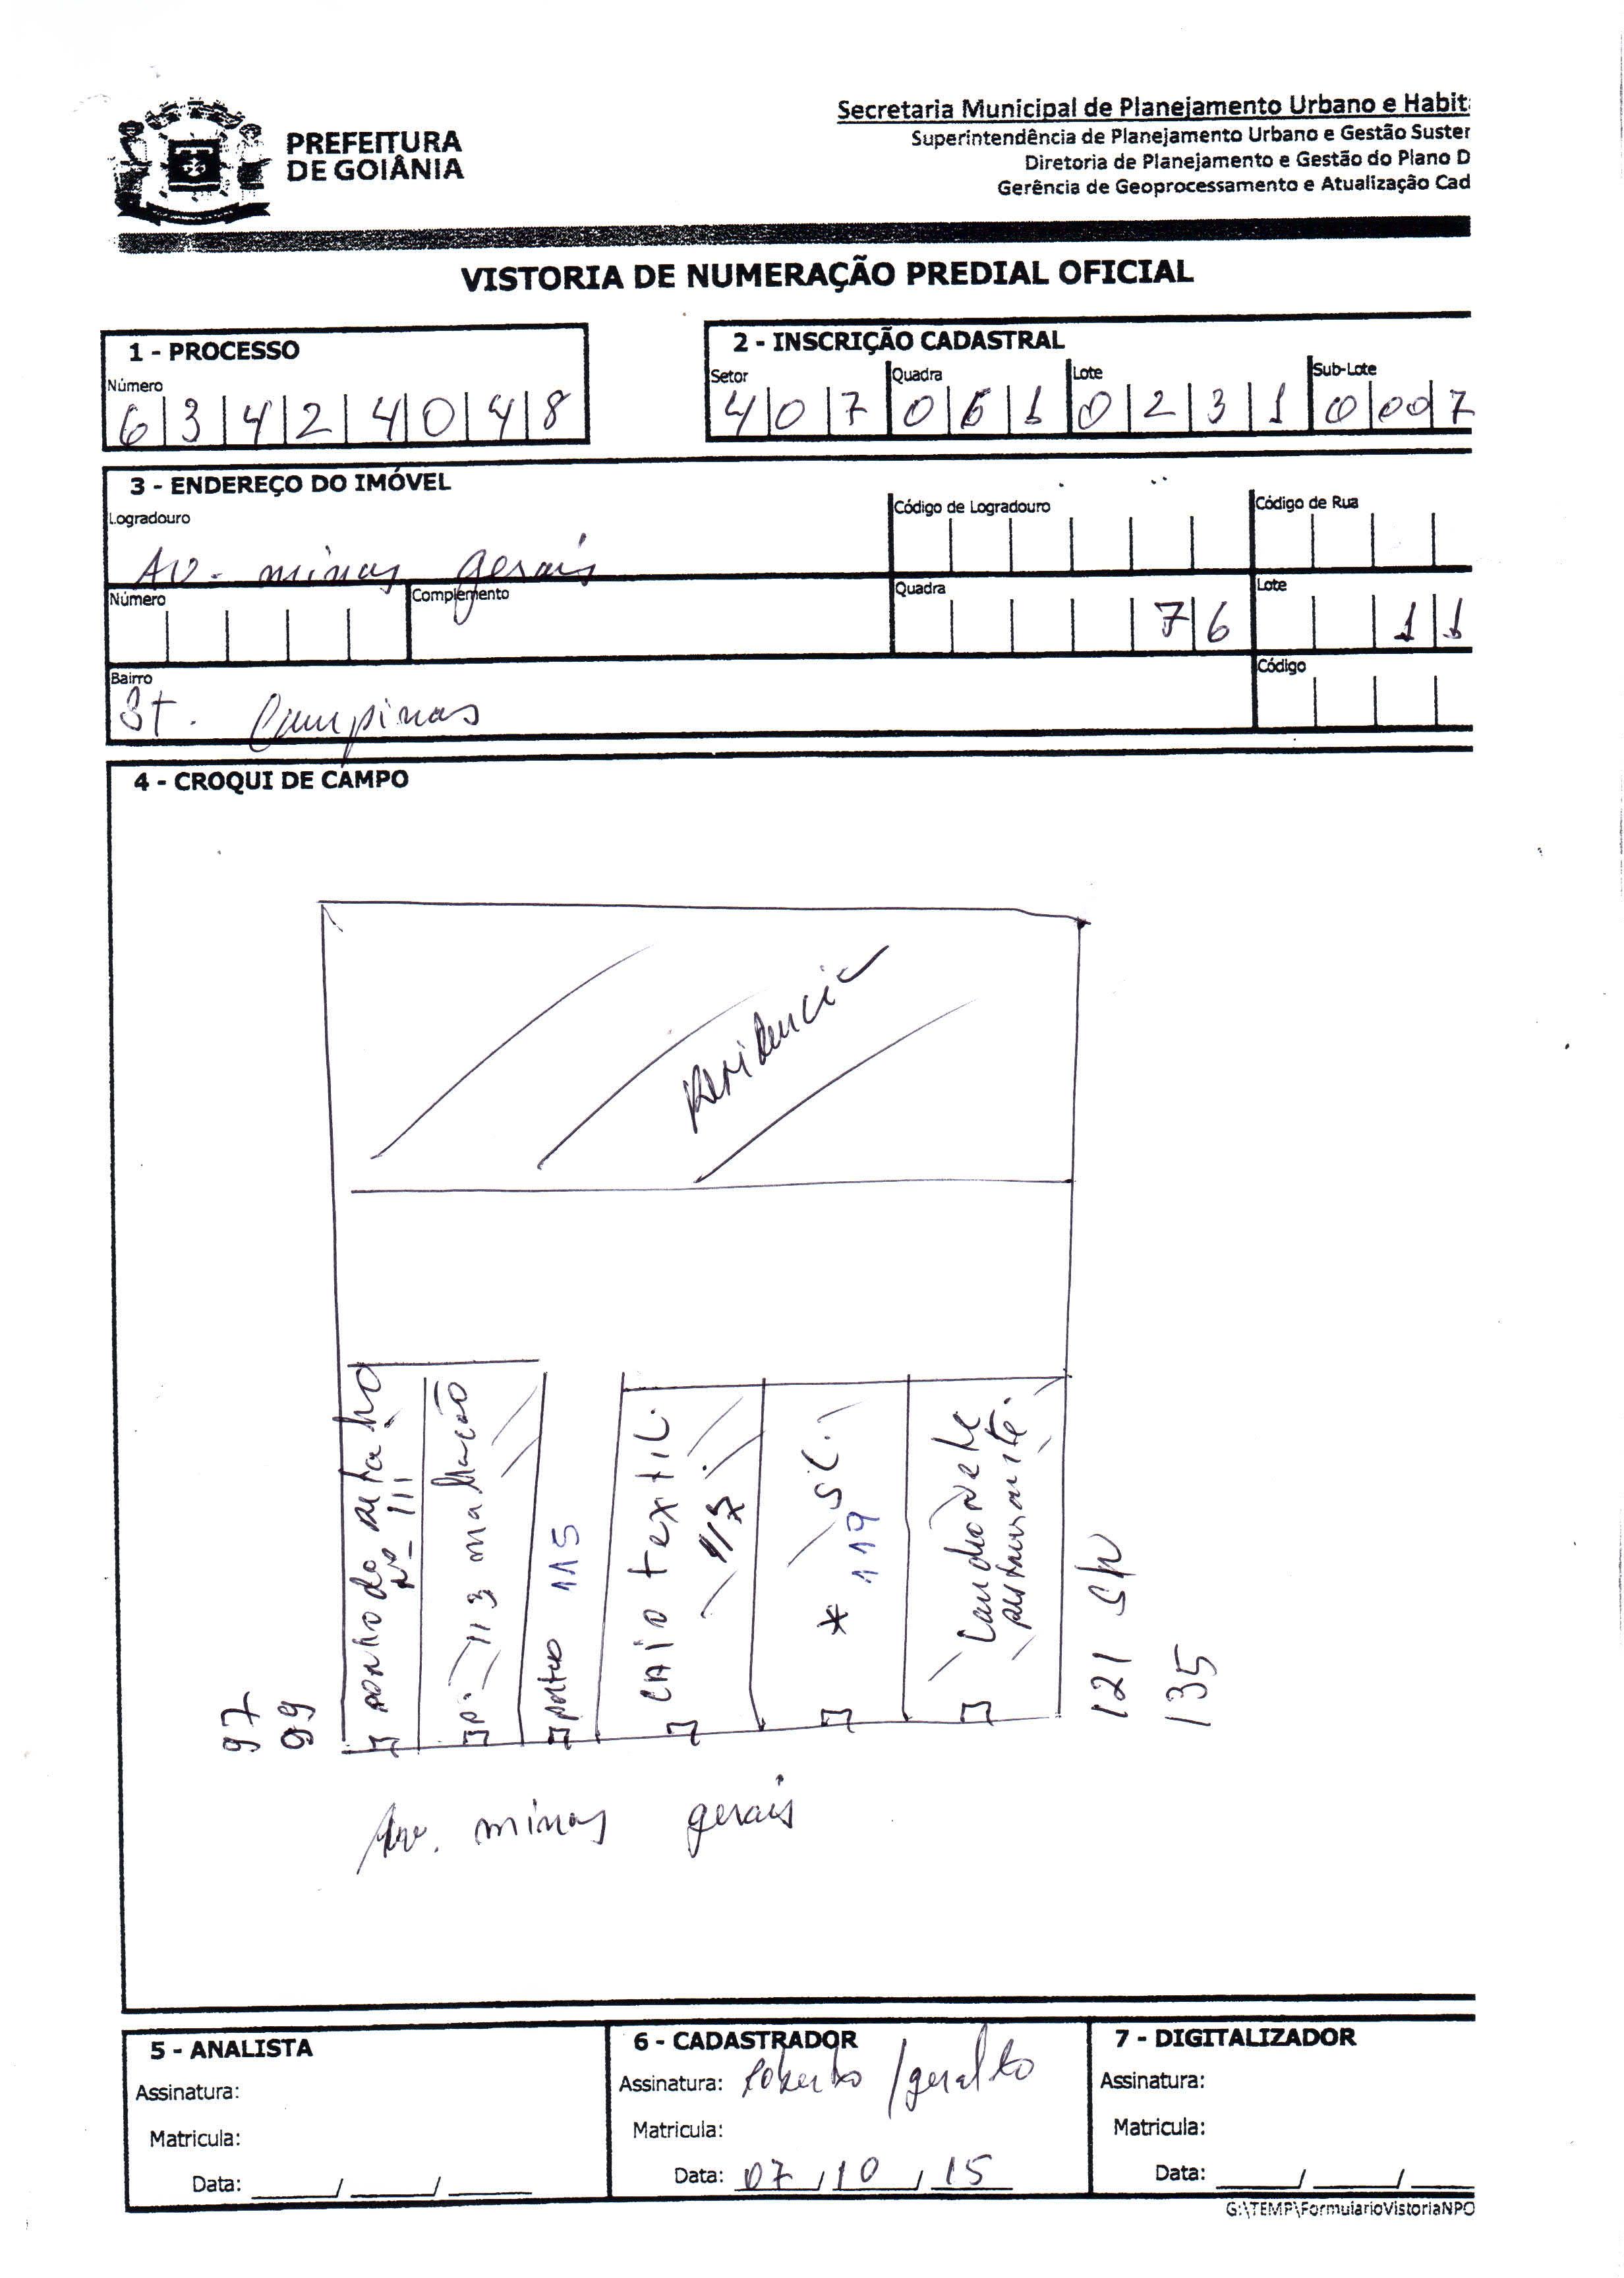 PREFEITURA
DE GOIÂNIA
Secretaria Municipal de Planejamento Urbano e Habit
Superintendência de Planejamento Urbano e Gestão Suster
Diretoria de Planejamento e Gestão do Plano D
Gerência de Geoprocessamento e Atualização Cad
VISTORIA DE NUMERAÇÃO PREDIAL OFICIAL
1 - PROCESSO
Número
6 3 4 2 4 0 4 8
2 - INSCRIÇÃO CADASTRAL
Setor Quadra Lote Sub-Lote
4 0 7 0 6 1 0 2 3 1 0 0 0 7
3 - ENDEREÇO DO IMÓVEL
Logradouro
Av. minas gerais
Código de Logradouro
Código de Rua
Número
Complemento
Quadra
7 6
Lote
1 1
Bairro
St. Campinas
Código
4 - CROQUI DE CAMPO
Residencia
Nº 111
113 malhação
115
CAIO textil
117
* SC.
119
restaurante.
97
99
121
135
Av. minas gerais
5 - ANALISTA
Assinatura:
Matricula:
Data: ____/____/____
6 - CADASTRADOR
Assinatura: Roberto / geralto
Matricula:
Data: 07/10/15
7 - DIGITALIZADOR
Assinatura:
Matricula:
Data: ____/____/____
G:\TEMP\FormularioVistoriaNPO